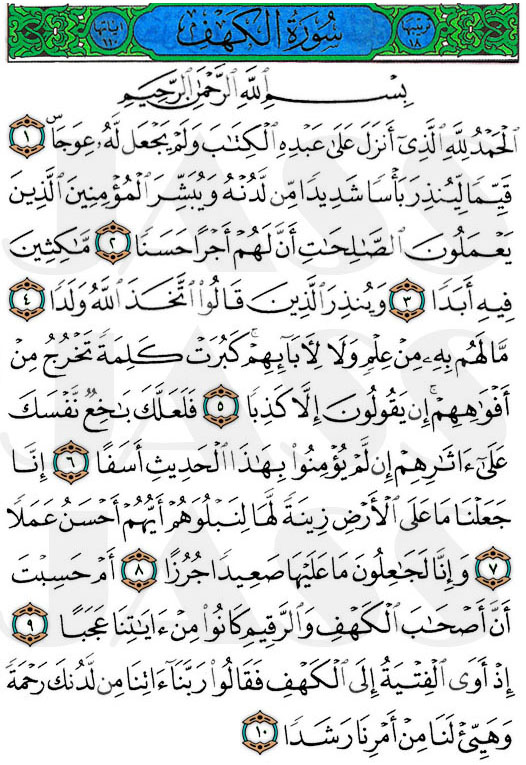 ترتيبها ١٨ سُورَةُ الكَهْفِ آياتها ١١٠
بِسْمِ اللَّهِ الرَّحْمَٰنِ الرَّحِيمِ
الْحَمْدُ لِلَّهِ الَّذِي أَنزَلَ عَلَىٰ عَبْدِهِ الْكِتَابَ وَلَمْ يَجْعَل لَّهُ عِوَجًا ۜ ١
قَيِّمًا لِّيُنذِرَ بَأْسًا شَدِيدًا مِّن لَّدُنْهُ وَيُبَشِّرَ الْمُؤْمِنِينَ الَّذِينَ
يَعْمَلُونَ الصَّالِحَاتِ أَنَّ لَهُمْ أَجْرًا حَسَنًا ٢ مَّاكِثِينَ
فِيهِ أَبَدًا ٣ وَيُنذِرَ الَّذِينَ قَالُوا اتَّخَذَ اللَّهُ وَلَدًا ٤
مَّا لَهُم بِهِ مِنْ عِلْمٍ وَلَا لِآبَائِهِمْ ۚ كَبُرَتْ كَلِمَةً تَخْرُجُ مِنْ
أَفْوَاهِهِمْ ۚ إِن يَقُولُونَ إِلَّا كَذِبًا ٥ فَلَعَلَّكَ بَاخِعٌ نَّفْسَكَ
عَلَىٰ ءَاثَارِهِمْ إِن لَّمْ يُؤْمِنُوا بِهَٰذَا الْحَدِيثِ أَسَفًا ٦ إِنَّا
جَعَلْنَا مَا عَلَى الْأَرْضِ زِينَةً لَّهَا لِنَبْلُوَهُمْ أَيُّهُمْ أَحْسَنُ عَمَلًا
٧ وَإِنَّا لَجَاعِلُونَ مَا عَلَيْهَا صَعِيدًا جُرُزًا ٨ أَمْ حَسِبْتَ
أَنَّ أَصْحَابَ الْكَهْفِ وَالرَّقِيمِ كَانُوا مِنْ ءَايَاتِنَا عَجَبًا ٩
إِذْ أَوَى الْفِتْيَةُ إِلَى الْكَهْفِ فَقَالُوا رَبَّنَا ءَاتِنَا مِن لَّدُنكَ رَحْمَةً
وَهَيِّئْ لَنَا مِنْ أَمْرِنَا رَشَدًا ١٠
JASS
JASS
JASS